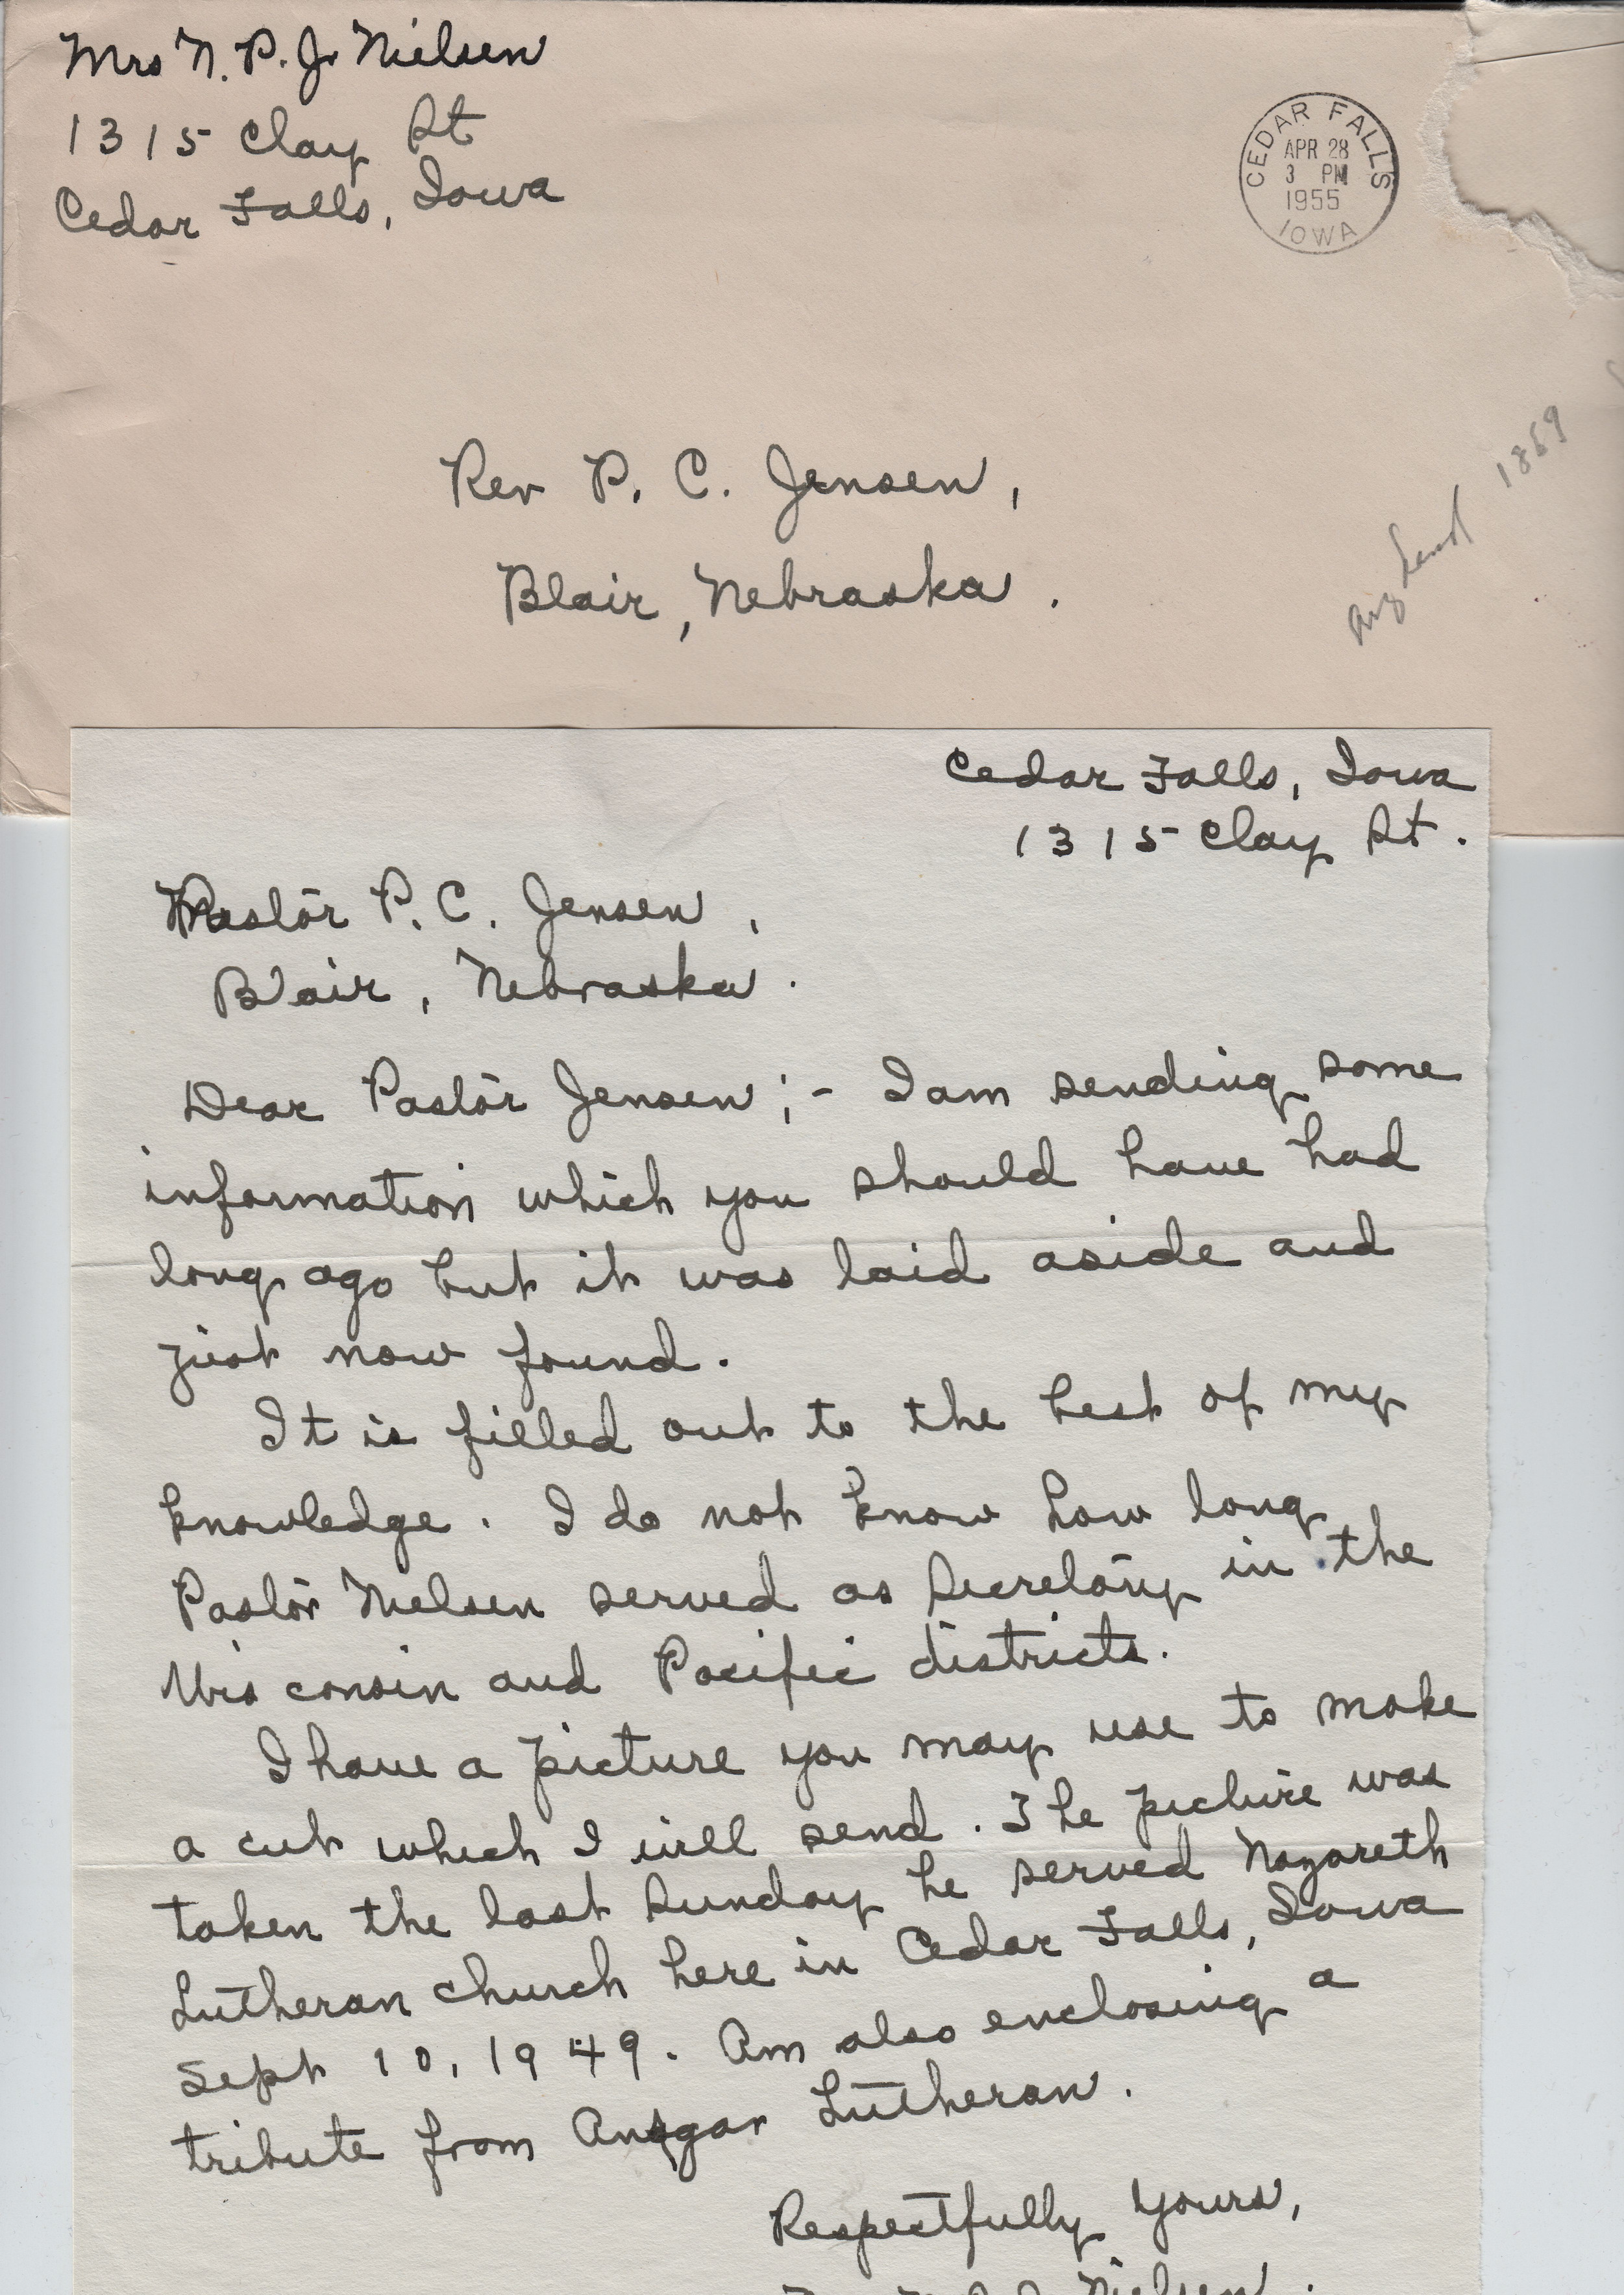 Mrs N. P. J. Nielsen
1315 Clay St
Cedar Falls, Iowa
CEDAR FALLS
APR 28
3 PM
1955
IOWA
Rev P. C. Jensen,
Blair, Nebraska.
1869
Cedar Falls, Iowa
1315 Clay St.
Pastor P. C. Jensen,
Blair, Nebraska.
Dear Pastor Jensen;- I am sending some
information which you should have had
long ago but it was laid aside and
just now found.
It is filled out to the best of my
knowledge. I do not know how long
Pastor Nielsen served as Secretary in the
Wisconsin and Pacific districts.
I have a picture you may use to make
a cut which I will send. The picture was
taken the last Sunday he served Nazareth
Lutheran church here in Cedar Falls, Iowa
Sept 10, 1949. Am also enclosing a
tribute from Ansgar Lutheran.
Respectfully Yours,
Nielsen.